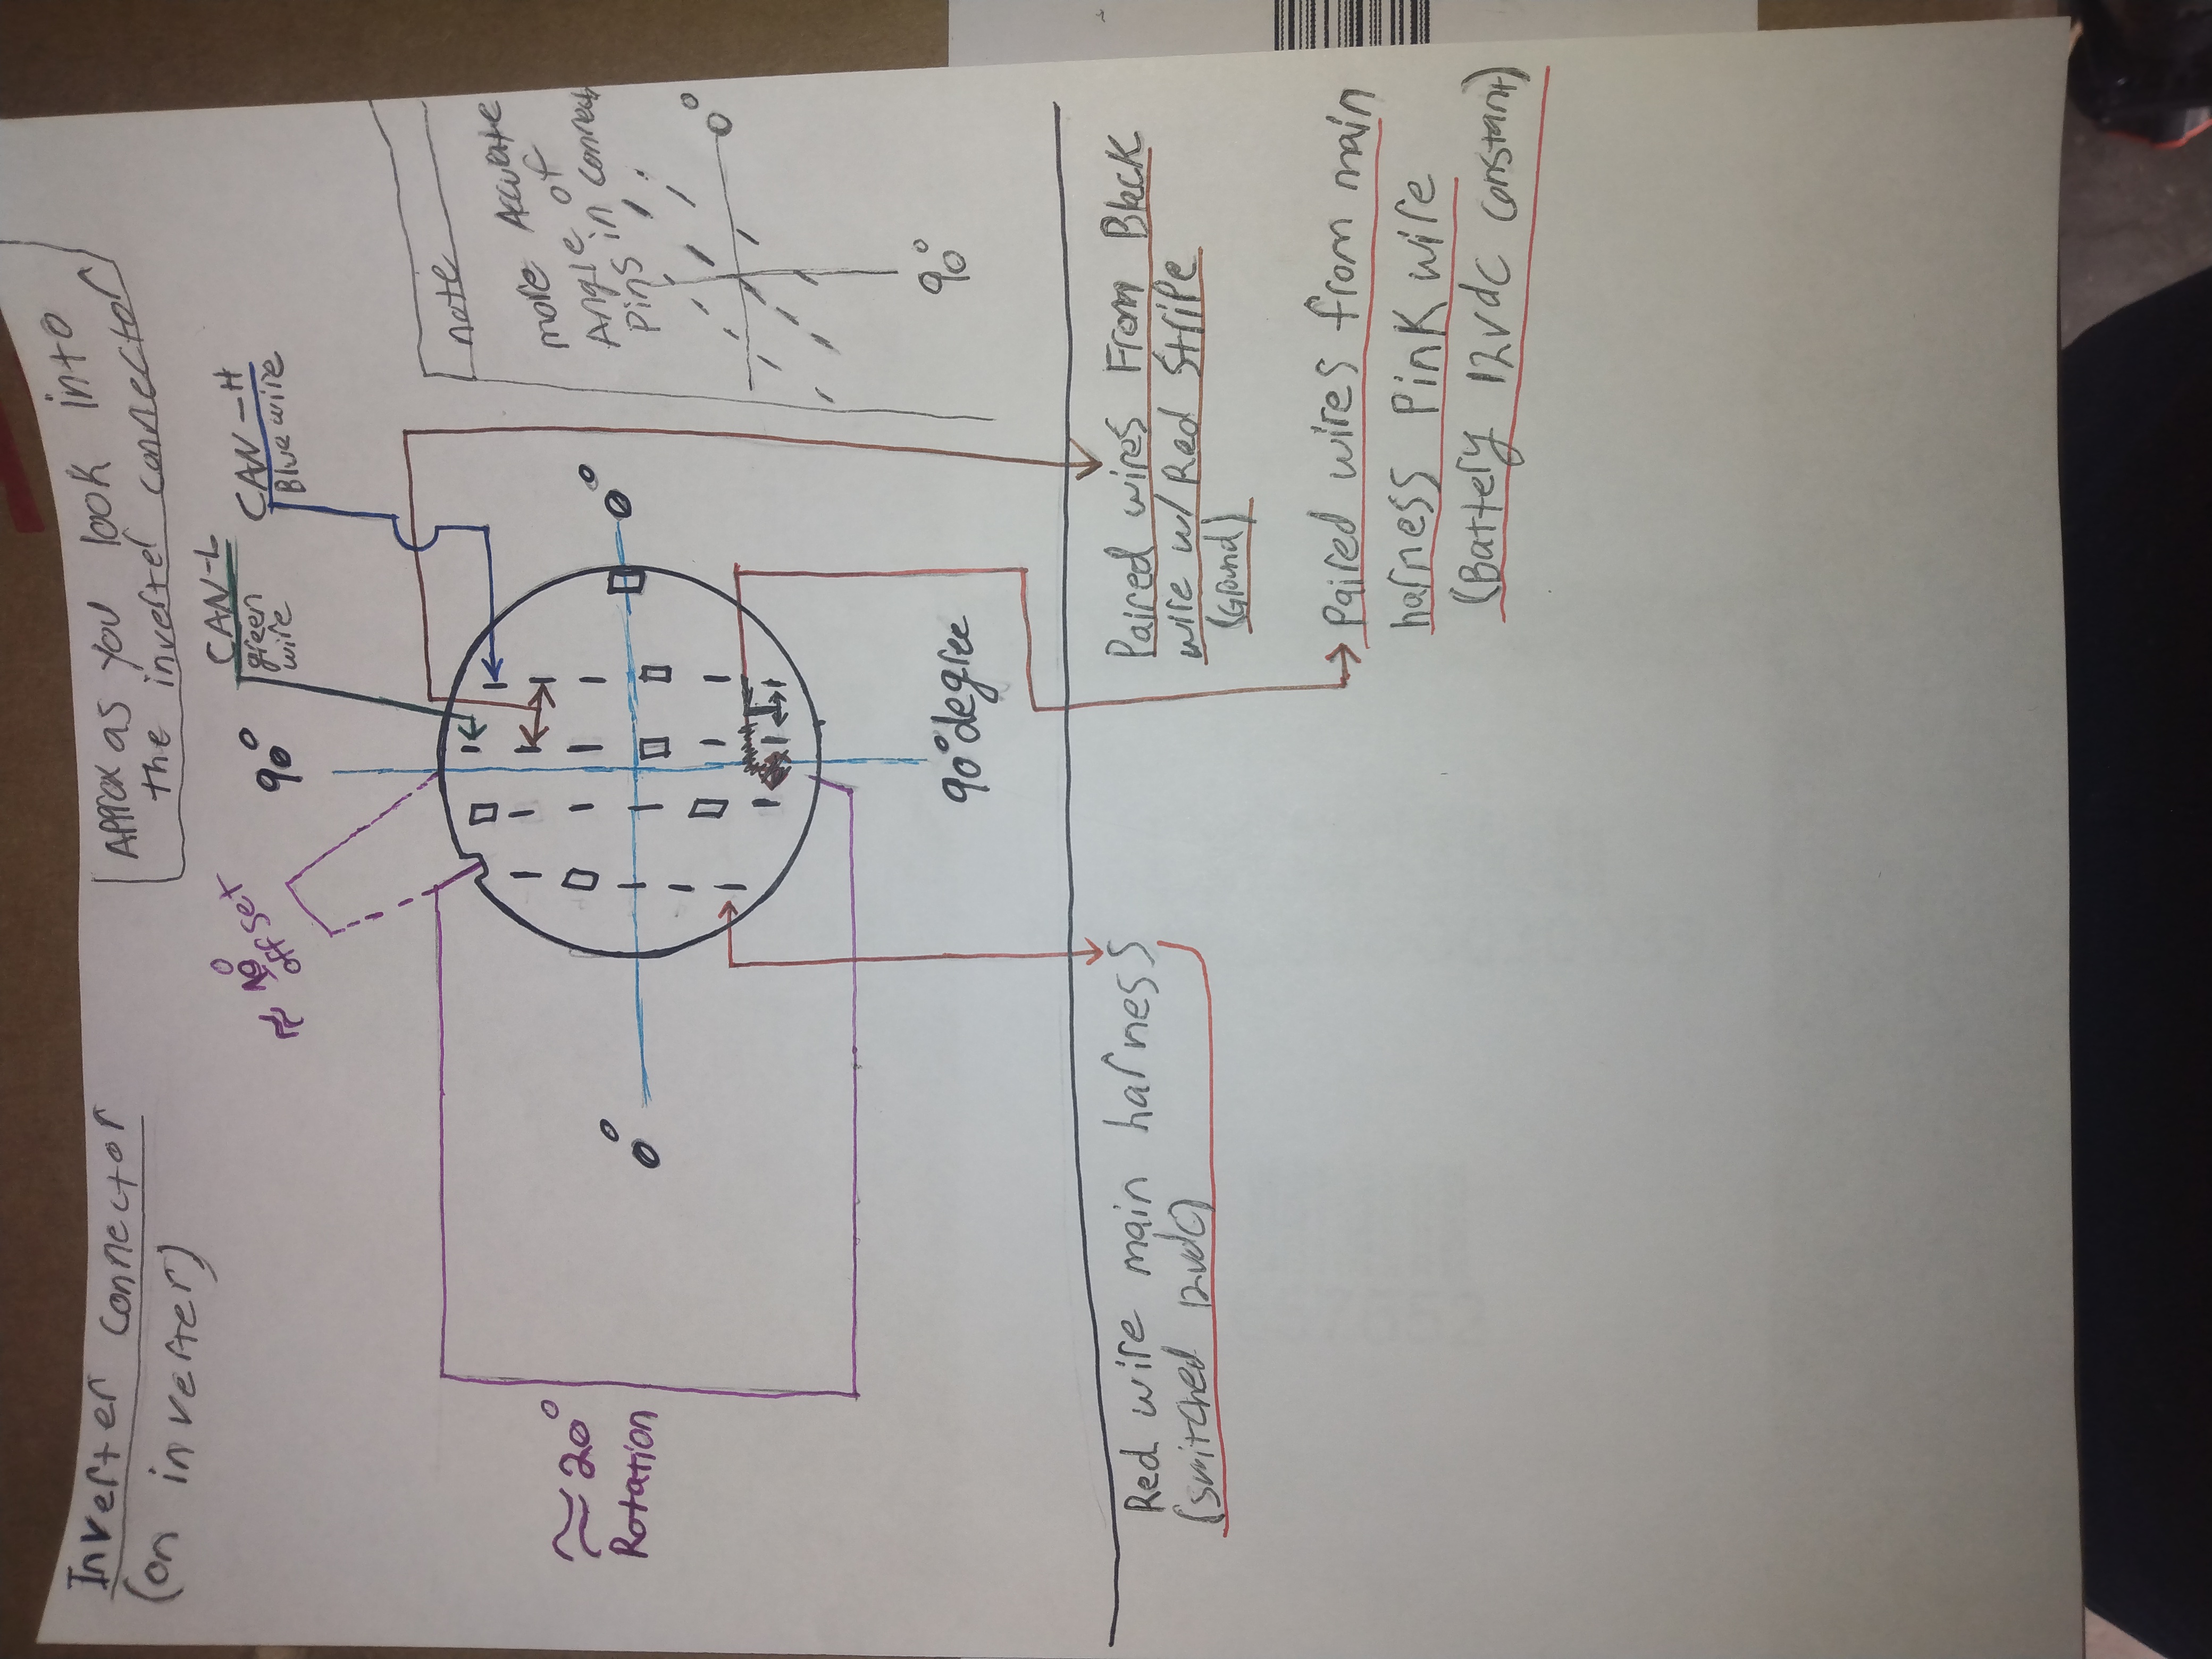 Inverter Connector
(on inverter)
Approx as you look into
the inverter connector
≈ 20°
offset
90°
CAN-L
green
wire
CAN-H
Blue wire
note
more Accurate
Angle of
Pins in
0°
90°
0°
0°
90° degree
≈20°
Rotation
Red wire main harness
(switched 12vdc)
Paired wires From Black
wire w/ Red Stripe
(Ground)
Paired wires from main
harness Pink wire
(Battery 12vdc constant)